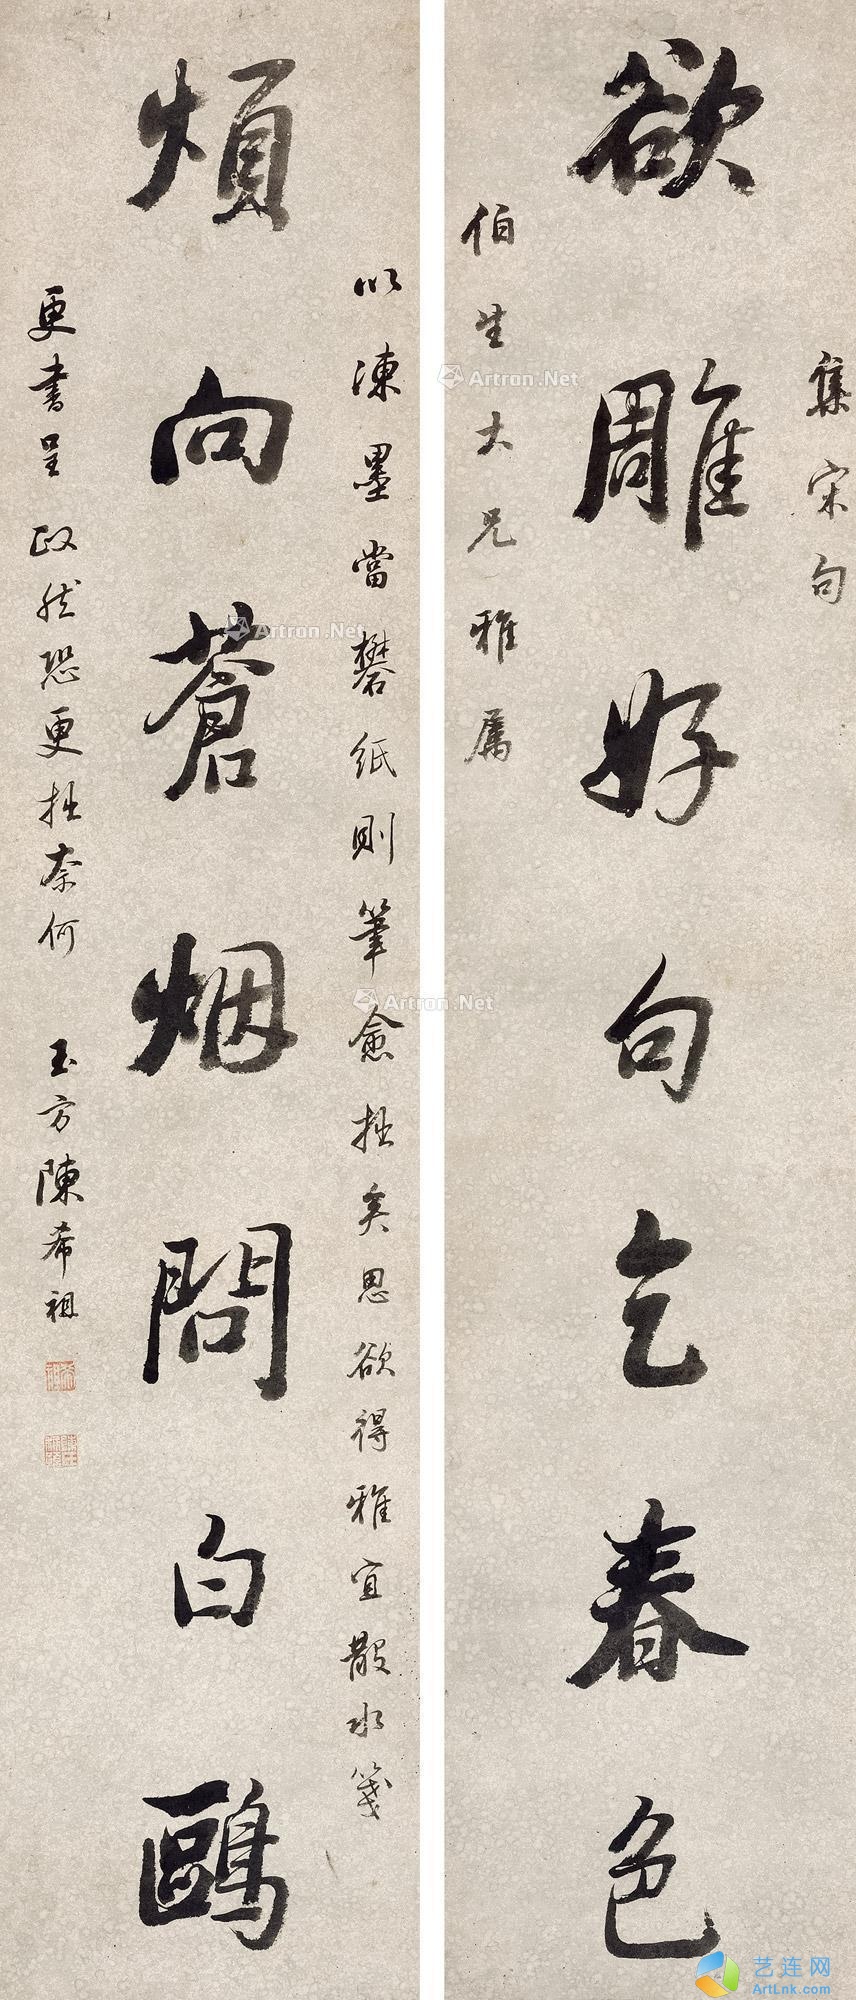 集宋句
欲雕好句乞春色
伯生大兄雅属
以凍墨當礬紙則筆愈拙矣思欲得雅宜散水箋
煩向蒼烟問白鷗
更書呈政然恐更拙奈何 玉方陳希祖
Artron.Net
Artron.Net
Artron.Net
艺连网
ArtLnk.com